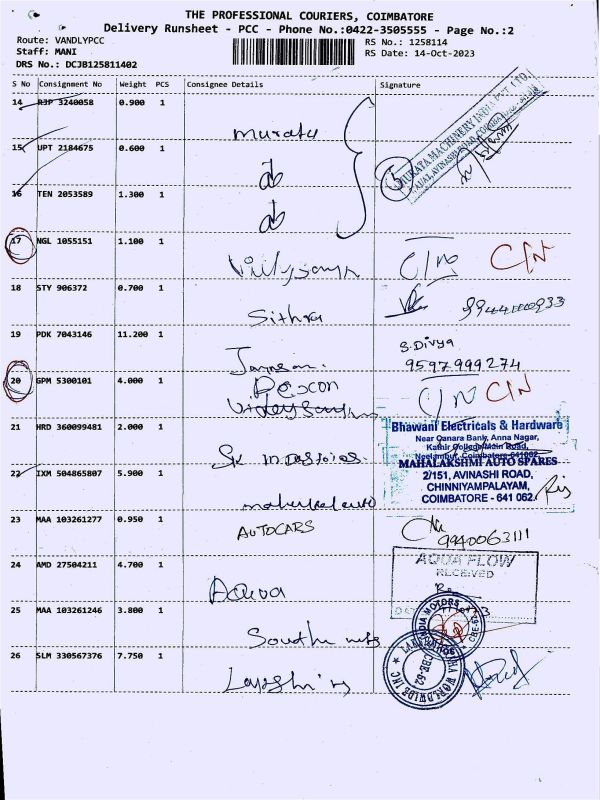 THE PROFESSIONAL COURIERS, COIMBATORE
Delivery Runsheet - PCC - Phone No.:0422-3505555 - Page No.:2
Route: VANDLYPCC
RS No.: 1258114
Staff: MANI
RS Date: 14-Oct-2023
DRS No.: DCJB125811402
S No Consignment No Weight PCS Consignee Details Signature
14 RJP 3240058 0.900 1
Murata
MURATA MACHINERY INDIA PVT. LTD.
15 UPT 2184675 0.600 1
do
16 TEN 2053589 1.300 1
do
17 NGL 1055151 1.100 1
C/N C/N
18 STY 906372 0.700 1
Sithra
19 PDK 7043146 11.200 1
S.Divya
9597999274
20 GPM 5300101 4.000 1
C/N C/N
21 HRD 360099481 2.000 1
Bhawani Electricals & Hardware
Near Canara Bank, Anna Nagar,
Kathir College Main Road,
Neelambur, Coimbatore-641062
22 IXM 504865807 5.900 1
MAHALAKSHMI AUTO SPARES
2/151, AVINASHI ROAD,
CHINNIYAMPALAYAM,
COIMBATORE - 641 062.
23 MAA 103261277 0.950 1
AUTOCARS
9940063111
24 AMD 27504211 4.700 1
Aqua
AQUA FLOW
RECEIVED
25 MAA 103261246 3.800 1
26 SLM 330567376 7.750 1